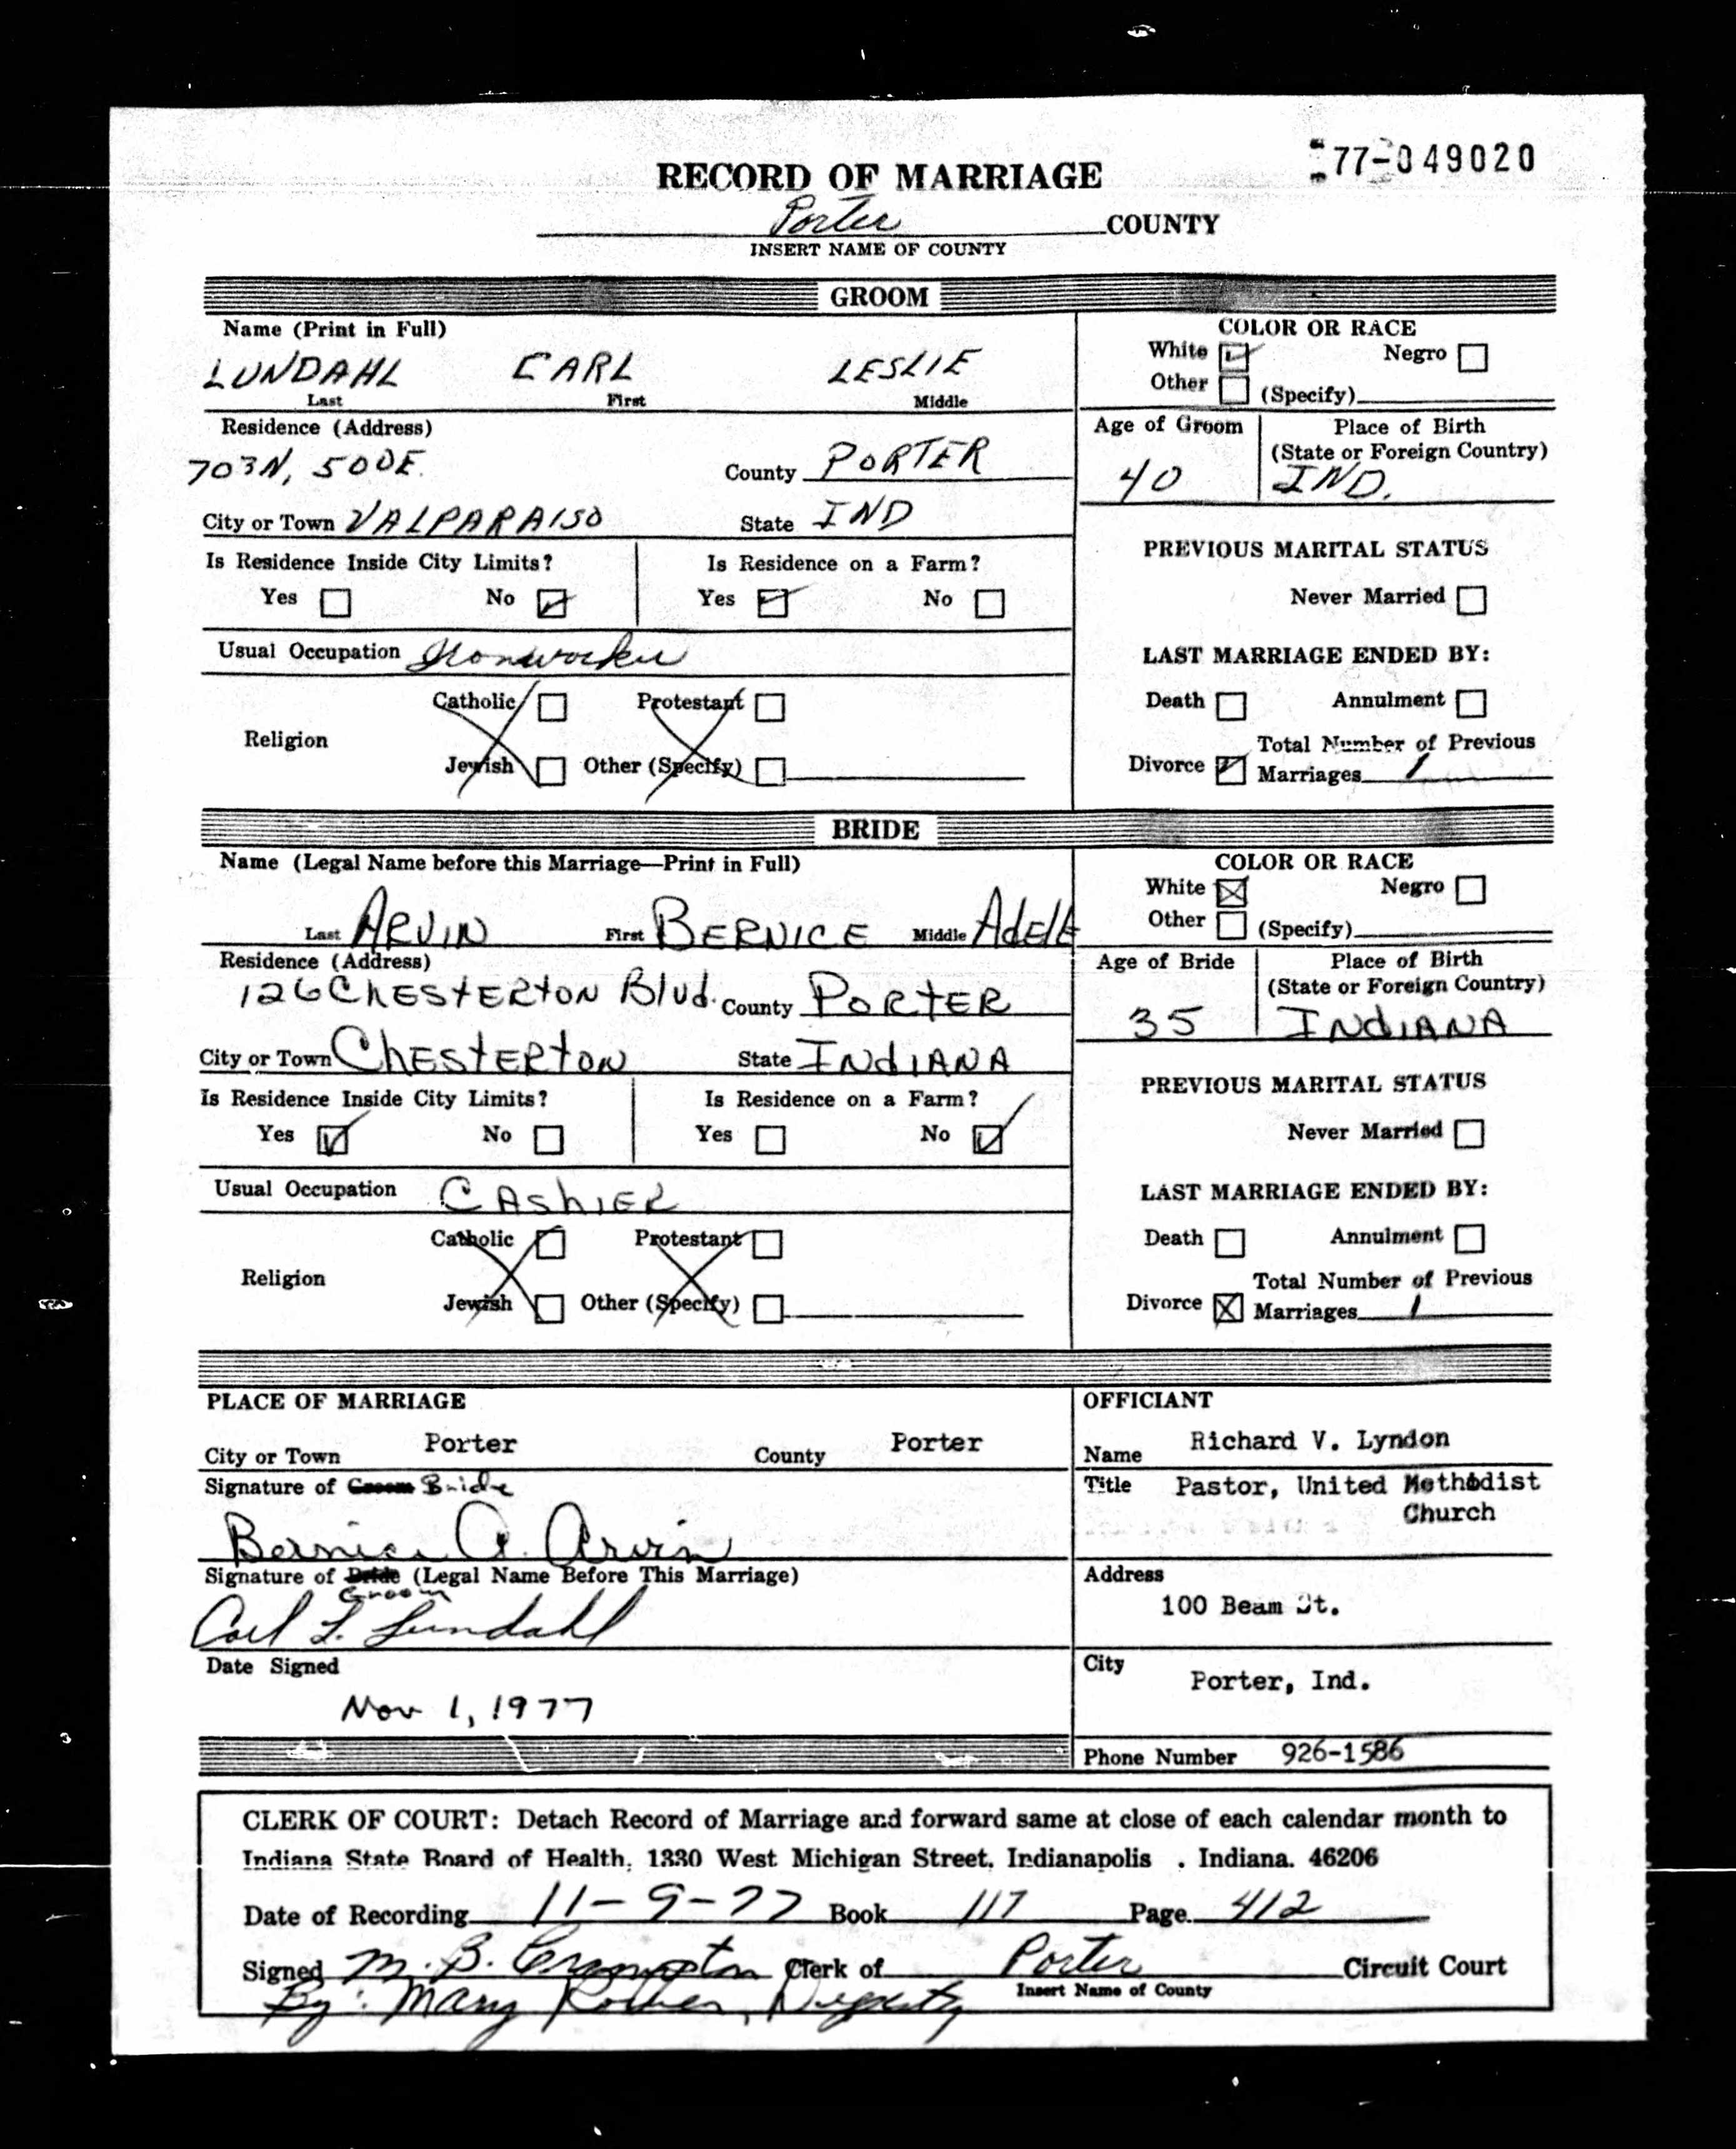 77-049020
RECORD OF MARRIAGE
Porter COUNTY
INSERT NAME OF COUNTY
GROOM
Name (Print in Full)
LUNDAHL CARL LESLIE
Last First Middle
COLOR OR RACE
White Negro
Other (Specify)
Residence (Address)
703N, 500E. County PORTER
City or Town VALPARAISO State IND
Age of Groom Place of Birth
(State or Foreign Country)
40 IND.
Is Residence Inside City Limits? Is Residence on a Farm?
Yes No Yes No
PREVIOUS MARITAL STATUS
Never Married
Usual Occupation Ironworker
LAST MARRIAGE ENDED BY:
Catholic Protestant
Religion
Jewish Other (Specify)
Death Annulment
Total Number of Previous
Divorce Marriages 1
BRIDE
Name (Legal Name before this Marriage—Print in Full)
Last ARVIN First BERNICE Middle AdellE
COLOR OR RACE
White Negro
Other (Specify)
Residence (Address)
126 ChESTERTON Blvd. County PORTER
City or Town ChESTERTON State INdIANA
Age of Bride Place of Birth
(State or Foreign Country)
35 INdIANA
Is Residence Inside City Limits? Is Residence on a Farm?
Yes No Yes No
PREVIOUS MARITAL STATUS
Never Married
Usual Occupation CAShIER
LAST MARRIAGE ENDED BY:
Catholic Protestant
Religion
Jewish Other (Specify)
Death Annulment
Total Number of Previous
Divorce Marriages 1
PLACE OF MARRIAGE
City or Town Porter County Porter
Signature of Groom Bride
Bernice A. Arvin
Signature of Bride (Legal Name Before This Marriage)
Groom
Carl L. Lundahl
Date Signed
Nov 1, 1977
OFFICIANT
Name Richard V. Lyndon
Title Pastor, United Methodist
Church
Address
100 Beam St.
City
Porter, Ind.
Phone Number 926-1586
CLERK OF COURT: Detach Record of Marriage and forward same at close of each calendar month to
Indiana State Board of Health, 1330 West Michigan Street, Indianapolis , Indiana. 46206
Date of Recording 11-9-77 Book 117 Page 412
Signed M. B. Crampton Clerk of Porter Circuit Court
Insert Name of County
By: Mary Deputy